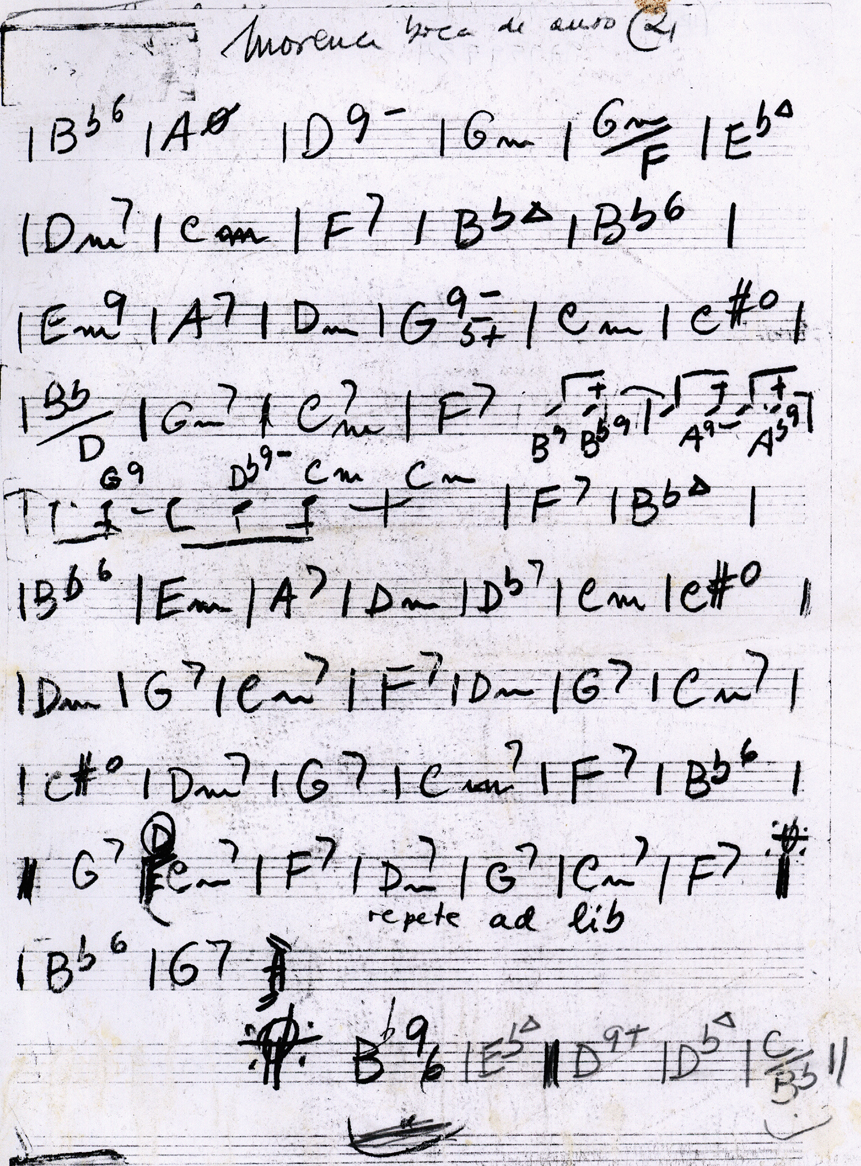 Morena boca de ouro (2)
| Bb6 | Aø | D9- | Gm | Gm/F | EbΔ
| Dm7 | Cm | F7 | BbΔ | Bb6 |
| Em9 | A7 | Dm | G9- 5+ | Cm | C#o |
| Bb/D | Gm7 | Cm7 | F7 B9 Bb9 | A9- Ab9 |
G9 Db9- Cm Cm | F7 | BbΔ |
| Bb6 | Em | A7 | Dm | Db7 | Cm | C#o |
| Dm | G7 | Cm7 | F7 | Dm | G7 | Cm7 |
| C#o | Dm7 | G7 | Cm7 | F7 | Bb6 |
| G7 D Cm7 | F7 | Dm7 | G7 | Cm7 | F7
repete ad lib
| Bb6 | G7
Bb9/6 | EbΔ | D9+ | DbΔ | C/Bb ||